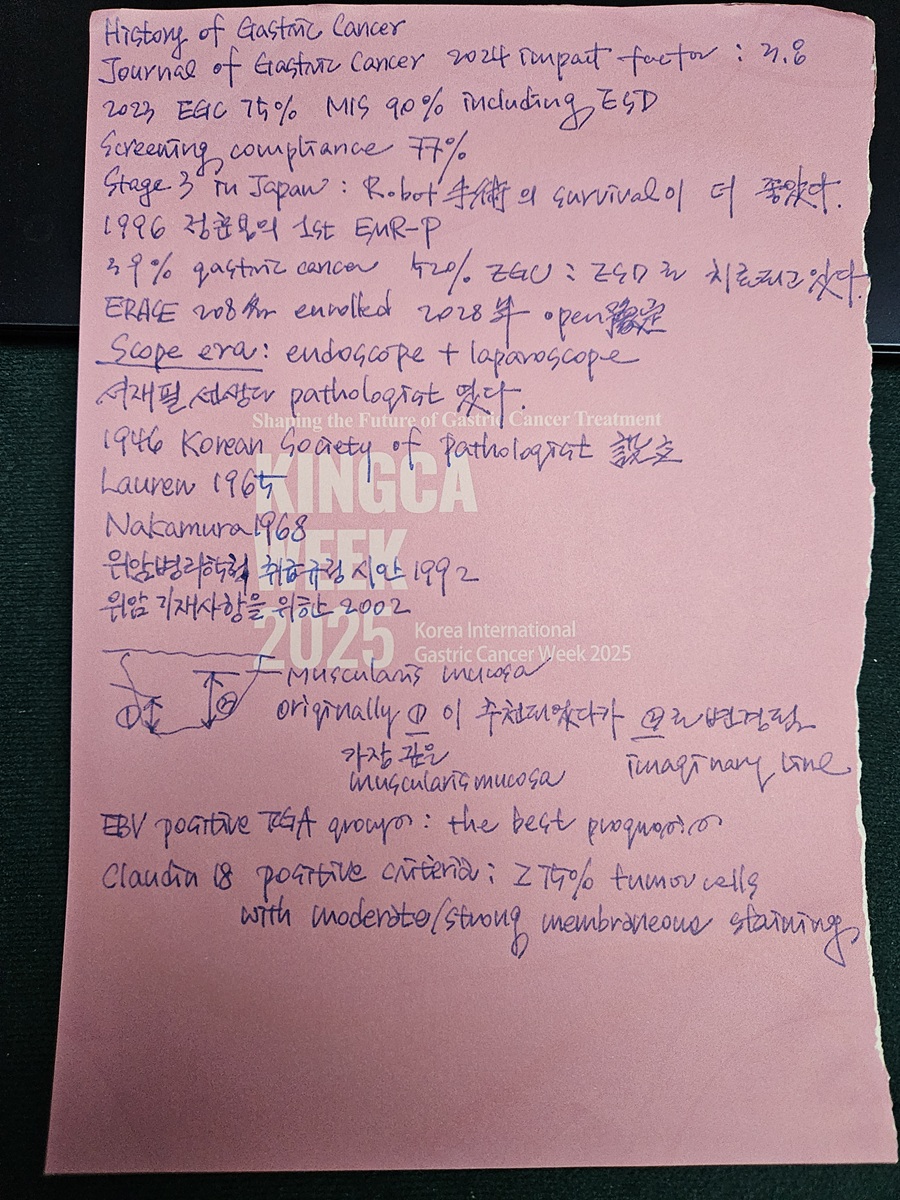 History of Gastric Cancer
Journal of Gastric Cancer 2024 impact factor : 3.8
2023 EGC 75% MIS 90% including ESD
Screening compliance 77%
Stage 3 in Japan : Robot 手術의 survival이 더 좋았다.
1996 의 1st EMR-P
39% gastric cancer 52% EGC : ESD로 치료되고 있다.
ERASE 208 enrolled 2028年 open豫定
Scope era : endoscope + laparoscope
서재필 선생도 pathologist 였다.
Shaping the Future of Gastric Cancer Treatment
1946 Korean Society of Pathologist 設立
KINGCA
Lauren 1965
WEEK
Nakamura 1968
위암병리학적 취급규정 시안 1992
위암 기재사항을 위한 2002
2025
Korea International
Gastric Cancer Week 2025
Muscularis mucosa
① ②
originally ① 이 추천되었다가 ②로 변경됨
가장 깊은 imaginary line
muscularis mucosa
EBV positive TCGA group : the best prognosis
Claudin 18 positive criteria : ≥ 75% tumor cells
with moderate/strong membraneous staining